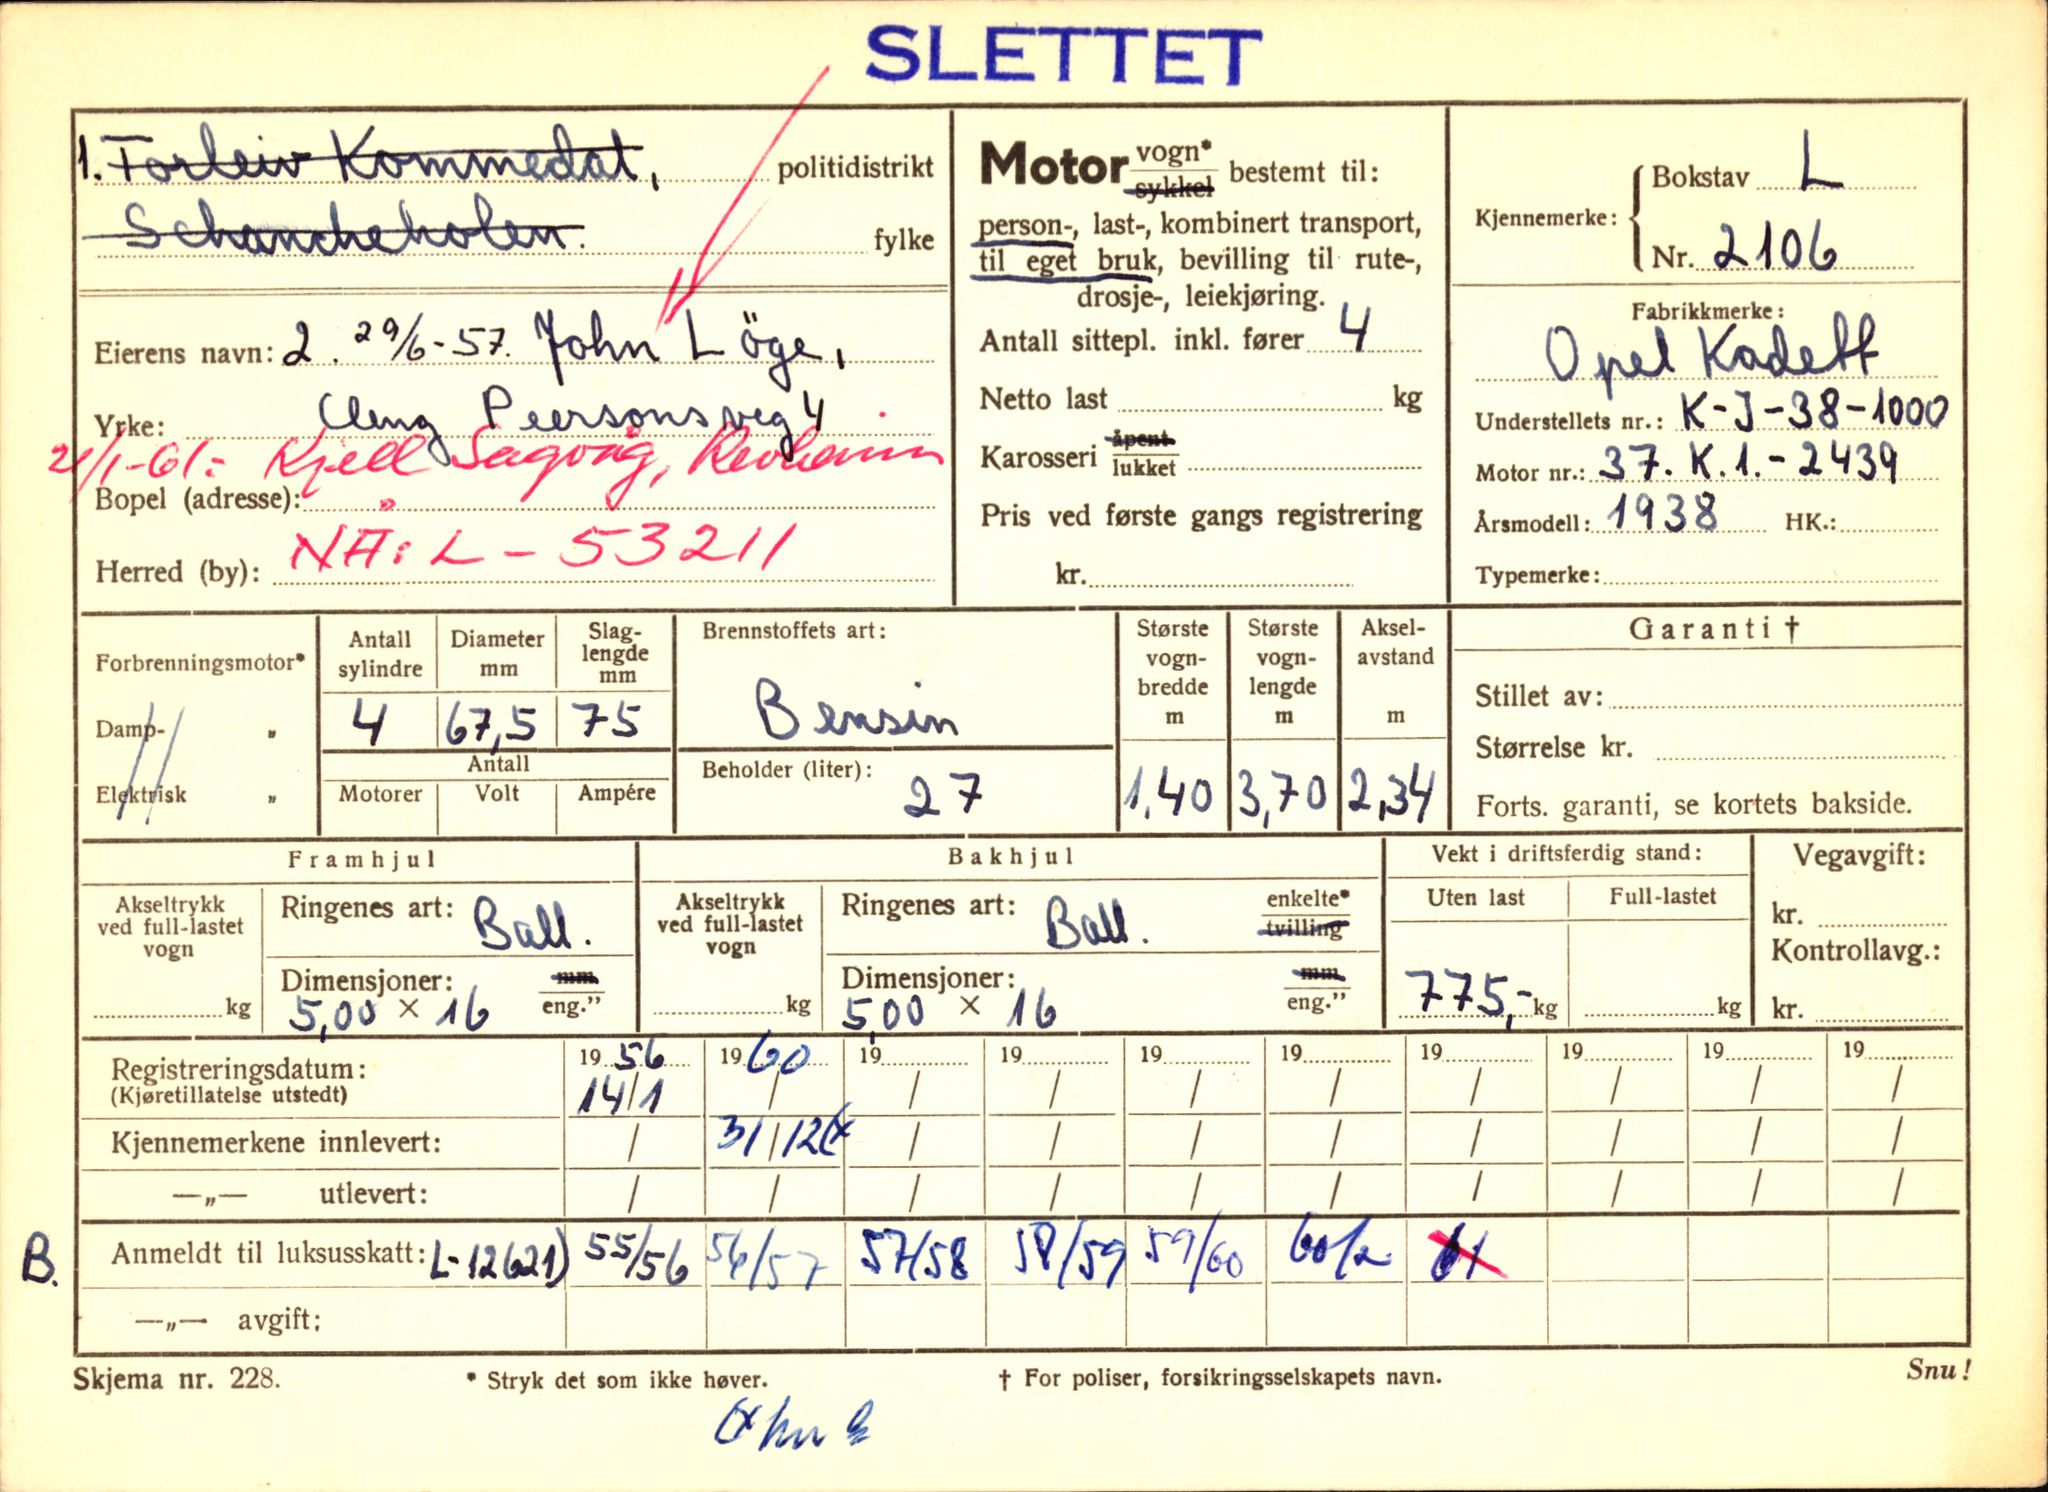 SLETTET
1. Torleiv Kommedal, politidistrikt
Schancheholen. fylke
Eierens navn: 2. 29/6-57. John Löge,
Yrke: Peersonsveg 4
21/1-61: Kjell Sagvåg, Revheim
Bopel (adresse):
NÅ: L - 53211
Herred (by):
Motor vogn* sykkel bestemt til:
person-, last-, kombinert transport,
til eget bruk, bevilling til rute-,
drosje-, leiekjøring.
Antall sittepl. inkl. fører 4
Netto last kg
Karosseri åpent lukket
Pris ved første gangs registrering
kr.
Kjennemerke: Bokstav L
Nr. 2106
Fabrikkmerke:
Opel Kadett
Understellets nr.: K-J-38-1000
Motor nr.: 37. K.1.-2439
Årsmodell: 1938 HK.:
Typemerke:
Forbrenningsmotor*
Damp- „
Elektrisk „
Antall sylindre
Diameter mm
Slag-lengde mm
4 67,5 75
Antall
Motorer Volt Ampére
Brennstoffets art:
Bensin
Beholder (liter):
27
Største vogn-bredde m
Største vogn-lengde m
Aksel-avstand m
1,40 3,70 2,34
Garanti †
Stillet av:
Størrelse kr.
Forts. garanti, se kortets bakside.
Framhjul
Akseltrykk ved full-lastet vogn
kg
Ringenes art: Ball.
Dimensjoner: mm eng."
5,00 × 16
Bakhjul
Akseltrykk ved full-lastet vogn
kg
Ringenes art: Ball. enkelte* tvilling
Dimensjoner: mm eng."
5,00 × 16
Vekt i driftsferdig stand:
Uten last Full-lastet
775,- kg kg
Vegavgift:
kr.
Kontrollavg.:
kr.
Registreringsdatum: 19 56 19 60 19 19 19 19 19 19 19 19
(Kjøretillatelse utstedt) 14/1 / / / / / / / / /
Kjennemerkene innlevert: / 31/12 (x / / / / / / / /
—„— utlevert: / / / / / / / / / /
B. Anmeldt til luksusskatt: L-12621) 55/56 56/57 57/58 58/59 59/60 60/2 61
—„— avgift:
Skjema nr. 228. * Stryk det som ikke høver. † For poliser, forsikringsselskapets navn. Snu!